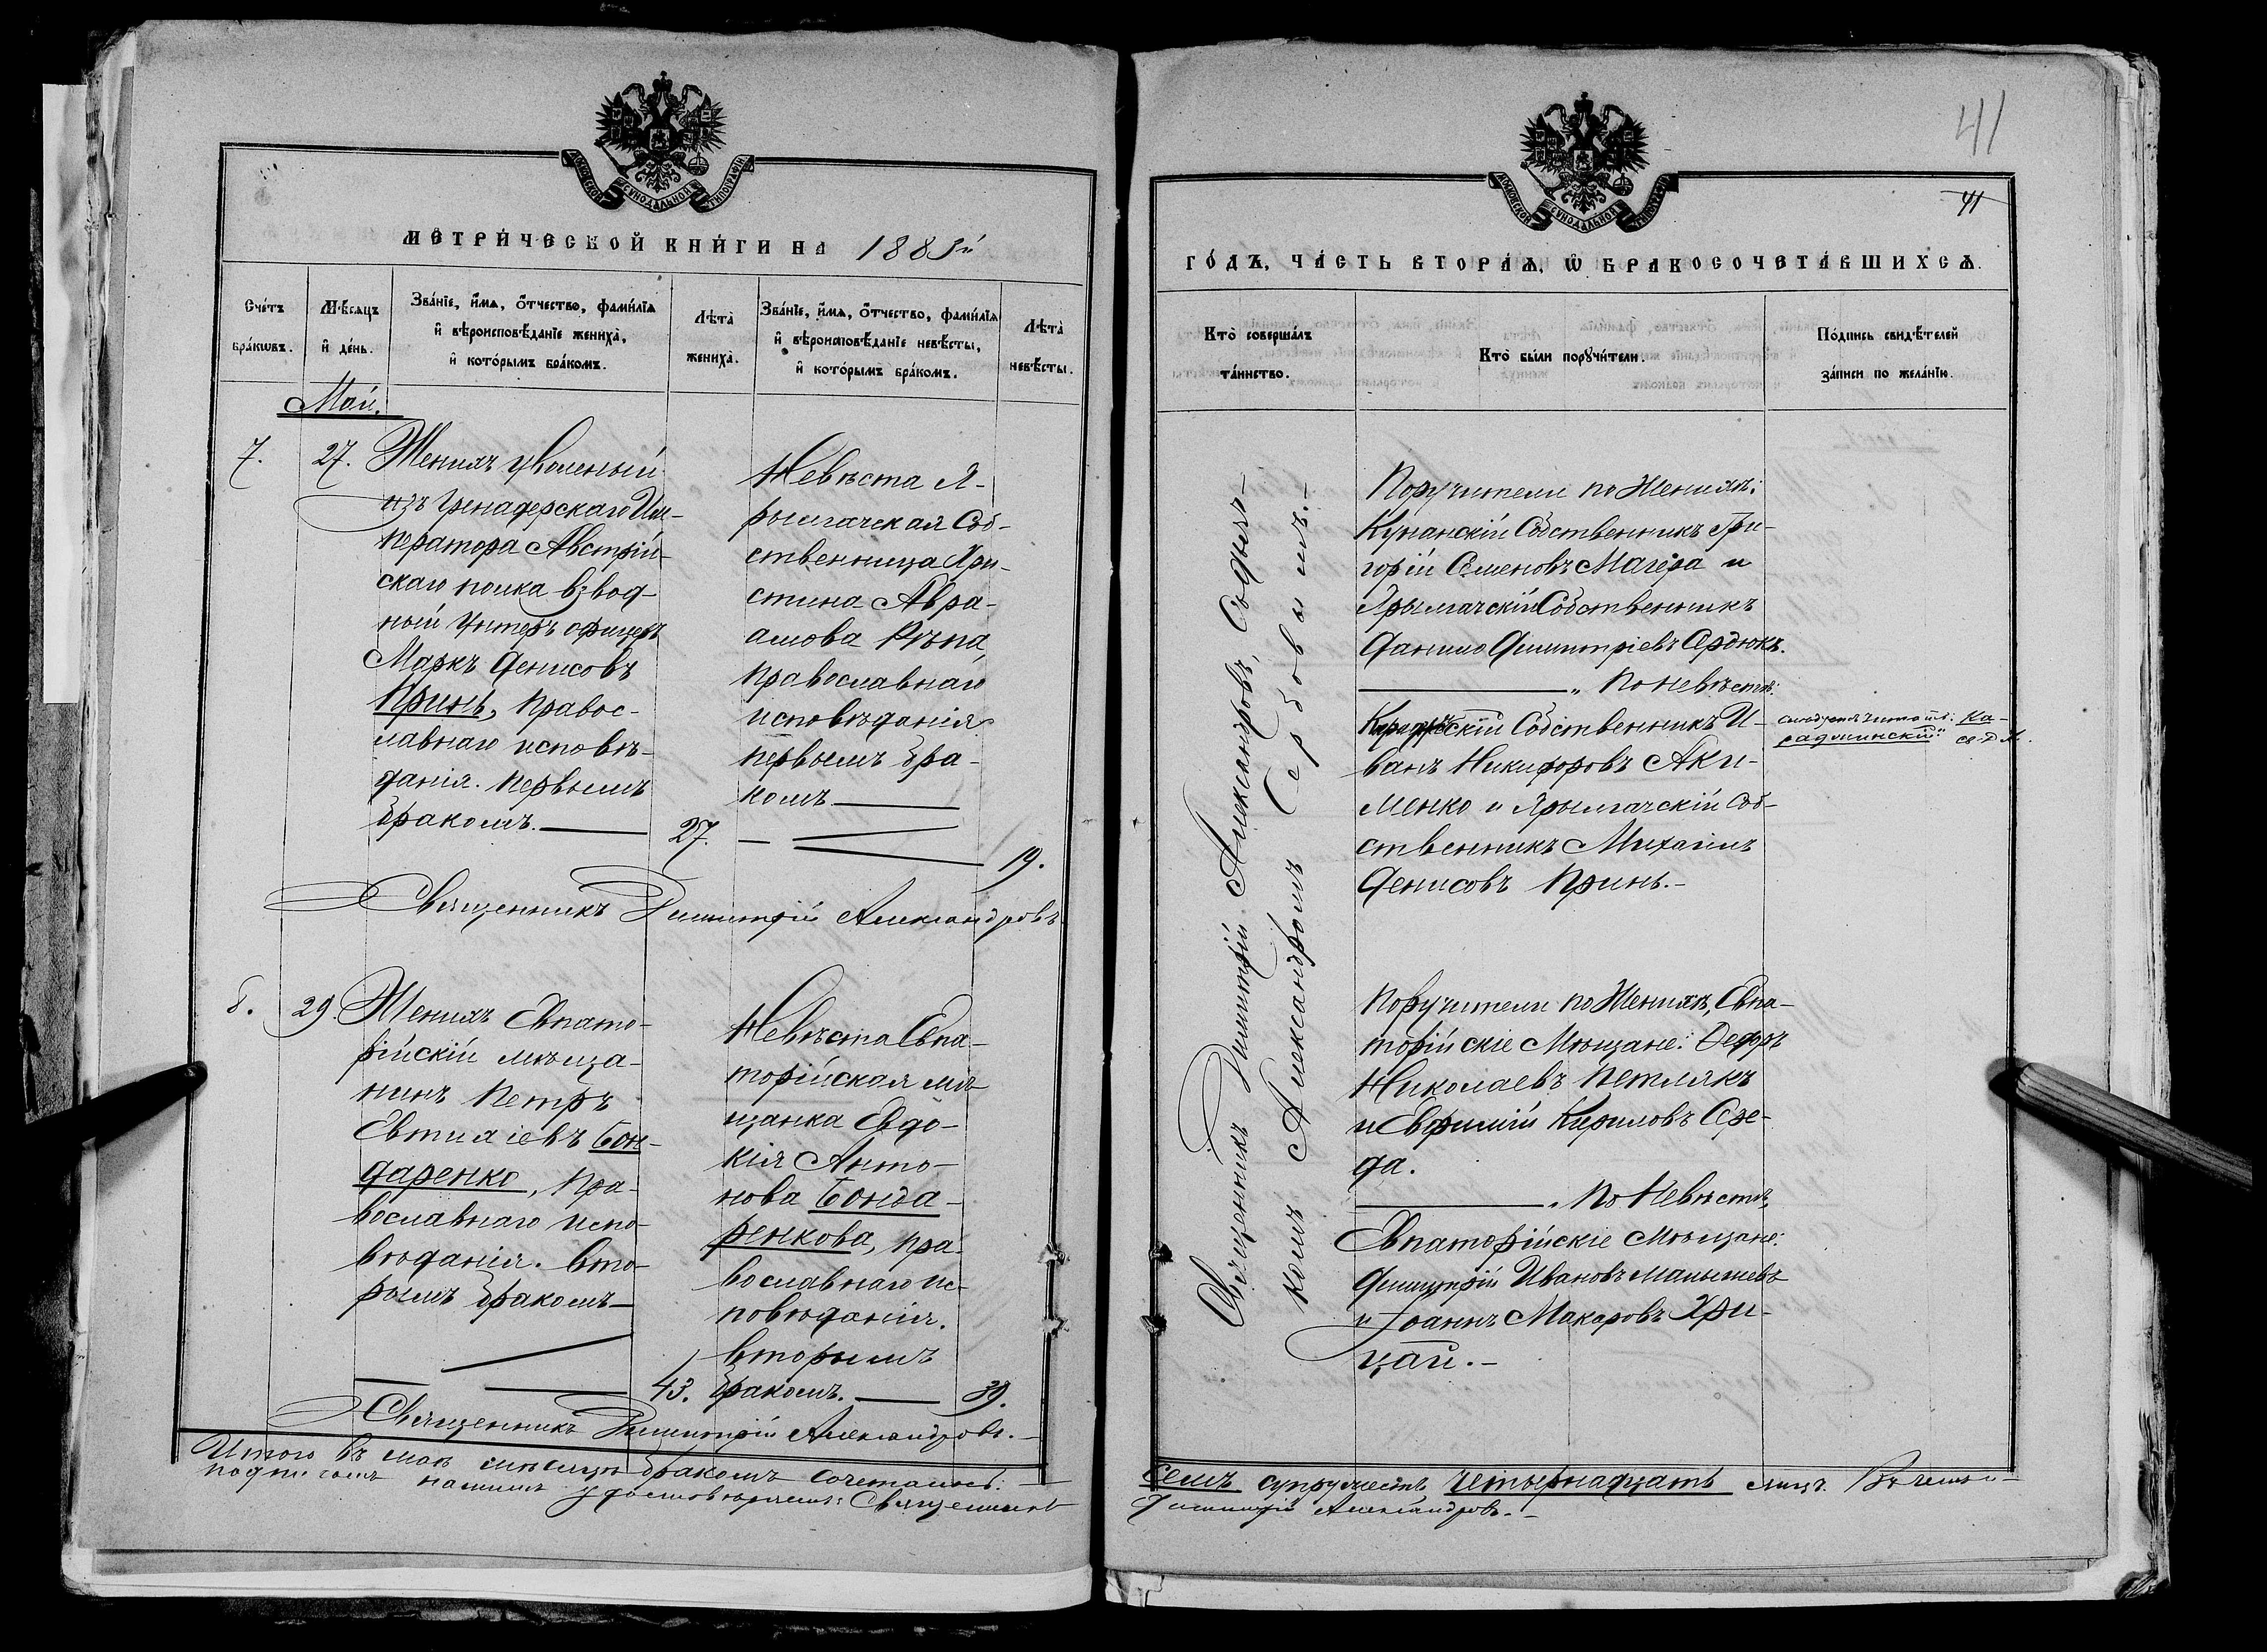 МОСКОВСКОЙ СѴНОДАЛЬНОЙ ТИПОГРАФІИ
МЕТРИ́ЧЕСКОЙ КНИ́ГИ НА 1885й
Сче́тъ бра́кωвъ.
Мѣ́сяцъ и҆ де́нь.
Зва́нїе, и҆́мѧ, ѻ҆́тчество, фами́лїѧ
и҆ вѣроисповѣ́данїе жениха̀,
и҆ кото́рымъ бра́комъ.
Лѣ́та̀ жениха̀.
Зва́нїе, и҆́мѧ, ѻ҆́тчество, фами́лїѧ
и҆ вѣроисповѣ́данїе невѣ́сты,
и҆ кото́рымъ бра́комъ.
Лѣ́та̀ невѣ́сты.
Май.
7. 27.
Женихъ уволеный
изъ Гренадерскаго Им-
ператора Австрій-
скаго полка взвод-
ный Унтеръ офицеръ
Маркъ Денисовъ
Принь, Правос-
лавнаго исповѣ-
данія. Первымъ
бракомъ.
27.
Невѣста Я-
рылгачская Соб-
ственница Хри-
стина Авра-
амова Рѣпа,
Православнаго
исповѣданія
первымъ бра-
комъ
19.
Священникъ Димитрій Александровъ
8. 29.
Женихъ Евпато-
рійскій мѣща-
нинъ Петръ
Евтихіевъ Бон-
даренко, Пра-
вославнаго испо-
вѣданія. Вто-
рымъ бракомъ
43.
Невѣста Евпа-
торійская мѣ-
щанка Евдо-
кія Анто-
нова Бонда-
ренкова, пра-
вославнаго ис-
повѣданія.
вторымъ
бракомъ.
39.
Священникъ Димитрій Александровъ.
Итого въ маѣ мѣсяцѣ бракомъ сочеталось:
подписомъ нашимъ удостовѣряемъ: Священникъ
41
МОСКОВСКОЙ СѴНОДАЛЬНОЙ ТИПОГРАФІИ
41
ГО́ДЪ, ЧА́СТЬ ВТОРА́Ѧ, Ѡ҆ БРАКОСОЧЕТА́ВШИХСѦ.
Кто̀ соверша́лъ та́инство.
Кто̀ бы́ли порꙋчи́тели.
По́дпись свидѣ́телей
за́писи по жела́нїю.
Священникъ Димитрій Александровъ, Съ дьяч-
комъ Александромъ Сербовымъ.
Поручители по Женихѣ:
Кунанскій Собственникъ Гри-
горій Семеновъ Магера и
Ярылгачскій Собственникъ
Данило Димитріевъ Сердюкъ.
" По невѣстѣ:
Собственникъ И-
ванъ Никифоровъ Аки-
менко и Ярылгачскій Соб-
ственникъ Михаилъ
Денисовъ Принь.
Поручители по Женихѣ, Евпа-
торійскіе Мѣщане: Ѳедоръ
Николаевъ Петлякъ
и Евфимій Кириловъ Сере-
да.
" По Невѣстѣ,
Евпаторійскіе Мѣщане:
Димитрій Ивановъ Малышевъ
и Іоаннъ Макаровъ Хри-
цай.
Семь супружествъ четырнадцать лицъ. Въ чемъ и
Димитрій Александровъ.